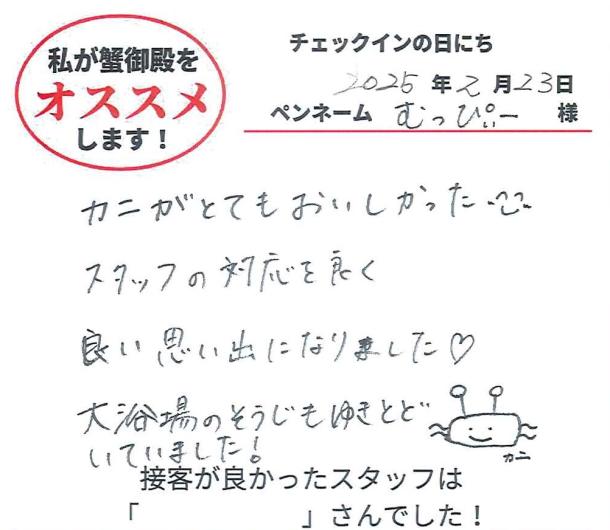 私が蟹御殿を
オススメ
します！
チェックインの日にち
2025年2月23日
ペンネーム むっぴぃー 様
カニがとてもおいしかった
スタッフの対応も良く
良い思い出になりました♡
大浴場のそうじもゆきとど
いていました！
カニ
接客が良かったスタッフは
「 」さんでした！